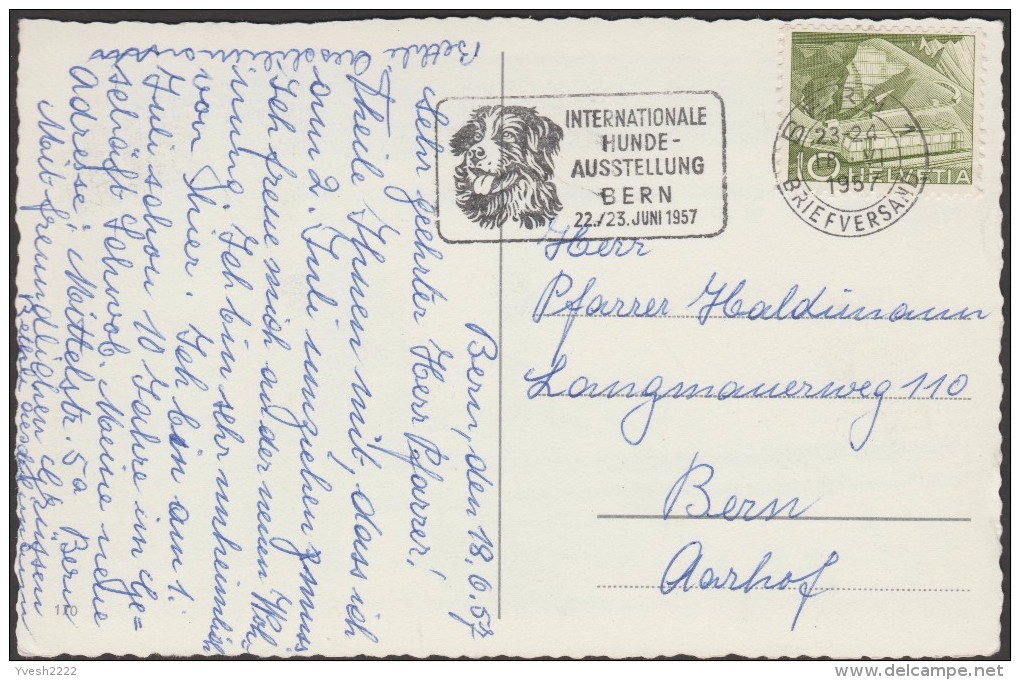 Bern, den 18.6.57
Sehr geehrter Herr Pfarrer!
Theile Ihnen mit, dass ich
am 2. Juli umziehen muss
Ich freue mich auf der neuen Woh-
nung. Ich bin sehr unheimlich
von Ihner. Ich bin am 1.
Juli schon 10 Jahre im Ge=
schäft Schwob. Meine neue
Adresse: Mittelstr. 5a Bern
Mit freundlichen Grüssen
INTERNATIONALE
HUNDE-
AUSSTELLUNG
BERN
22./23. JUNI 1957
BERN 1
23-24
1957
BRIEFVERSAND
10 HELVETIA
Herr
Pfarrer Haldimann
Langmauerweg 110
Bern
Aarhof
Yvesh2222
delcampe.net